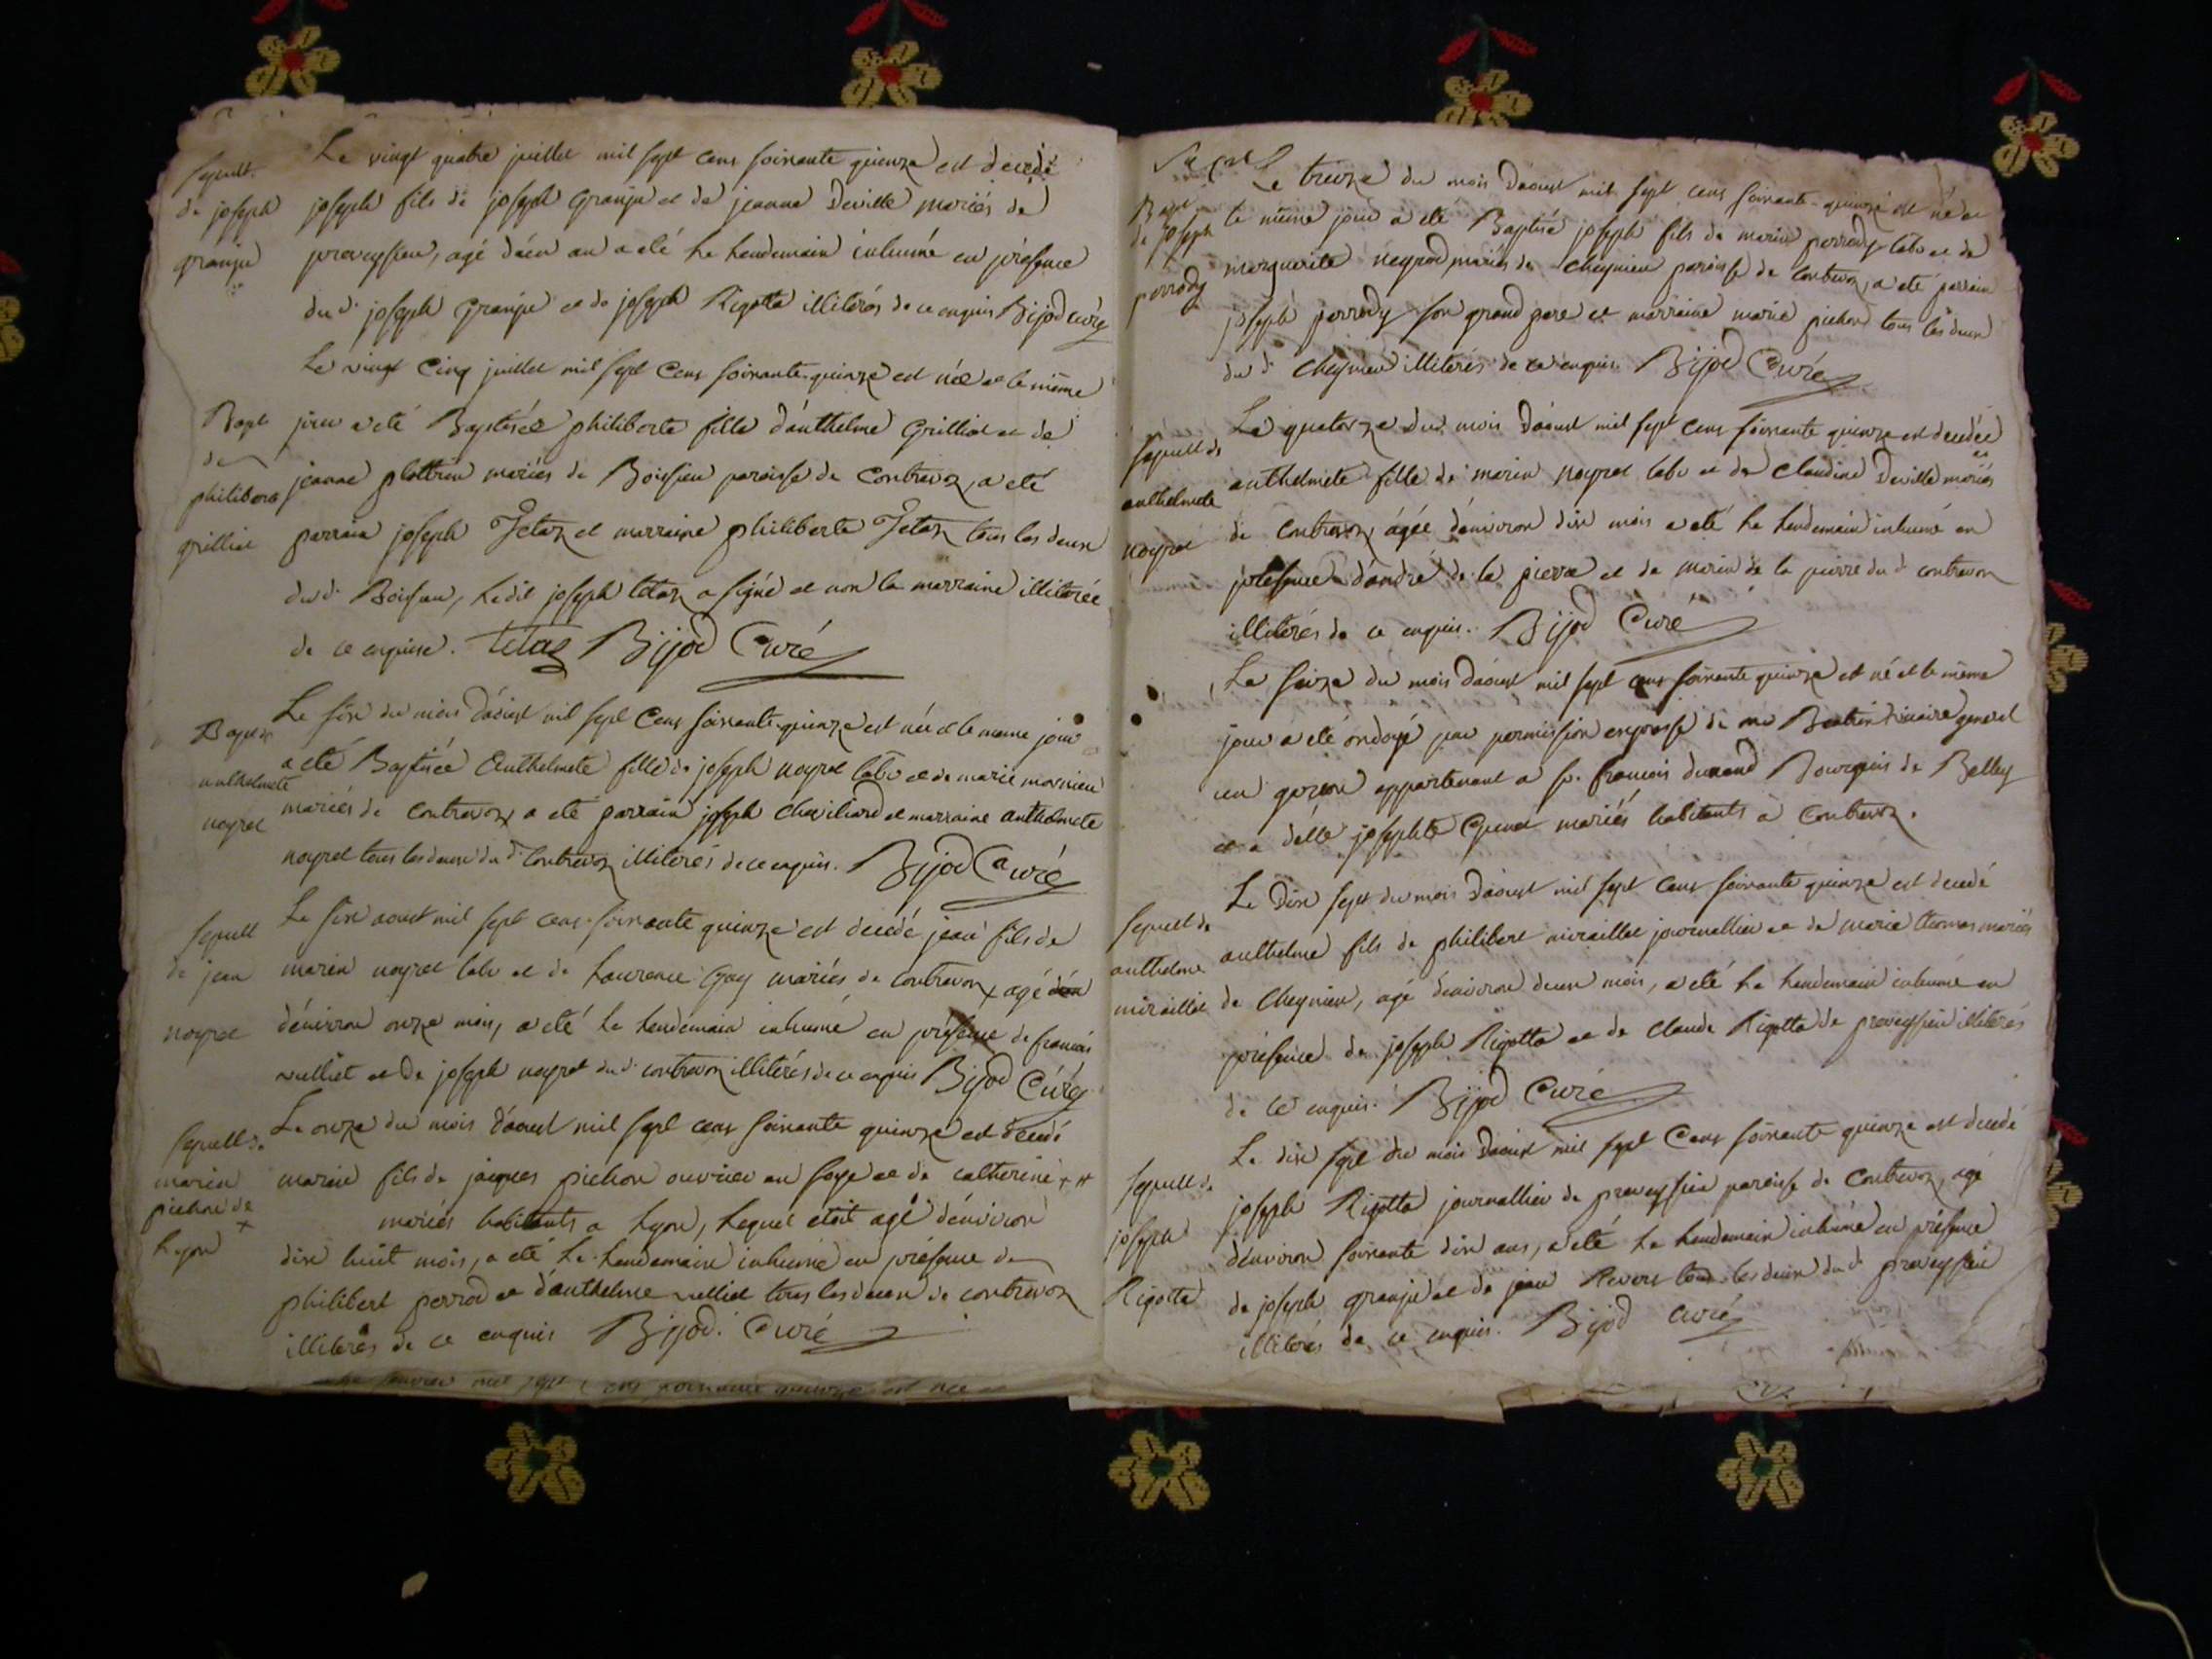 Le vingt quatre juillet mil sept cens soixante quinze est decedé
Sepult.
de joseph
granju
joseph fils de joseph granju et de jeanne Deville mariés de
preveyssieu, agé d'un an a eté le lendemain inhumé en présence
du dt joseph granju et de joseph Rigotta illiterés de ce enquis Bijod curé
Le vingt cinq juillet mil sept cens soixante quinze est née et le même
Bapt
de
philiberte
grilliet
jour a eté Baptisée philiberte fille d'anthelme Grilliet et de
jeanne plattrin mariés de Boissieu paroisse de Contrevoz, a eté
parrain joseph Tetaz et marraine philiberte Tetaz tous les deux
du dt Boissieu, le dit joseph tetaz a signé et non la marraine illiterée
de ce enquise. tetaz Bijod Curé
Le six du mois d'aoust mil sept cens soixante quinze est née et le meme jour
Bapt de
anthelmete
neyret
a eté Baptisée Anthelmete fille de joseph neyret labr et de marie marnieu
mariés de contrevoz a eté parrain joseph chaviliard et marraine anthelmete
neyret tous les deux du dt Contrevoz illiterés de ce enquis. Bijod Curé
Le six aoust mil sept cens soixante quinze est decedé jean fils de
Sepult
de jean
neyret
marin neyret labr et de Laurence Gay mariés de contrevoz agé d'un
d'environ onze mois, a eté le lendemain inhumé en présence de francois
vulliet et de joseph neyret du dt contrevoz illiterés de ce enquis Bijod Curé
Le onze du mois d'aoust mil sept cens soixante quinze est decedé
Sepult de
marin
pichon de
Lyon
marin fils de jacques pichon ouvrier en soye et de catherine
mariés habitants a Lyon, lequel etoit agé d'environ
dix huit mois, a eté le lendemain inhumé en présence de
philibert perrod et d'anthelme vulliet tous les deux de contrevoz
illiterés de ce enquis Bijod. Curé
Le treize du mois d'aoust mil sept cens soixante quinze est né et
Bapt
de joseph
perrody
le même jour a eté Baptisé joseph fils de marin perrody labr et de
marguerite neyrod mariés de cheynieu paroisse de Contrevoz, a eté parrain
joseph perrody son grand pere et marraine marie pichon tous les deux
du dt cheynieu illiterés de ce enquis. Bijod Curé
Le quatorze du mois d'aoust mil sept cens soixante quinze est decedée
Sepult de
anthelmete
neyret
anthelmete fille de marin neyret labr et de Claudine Deville mariés
de contrevoz agée d'environ dix mois a eté le lendemain inhumé en
présence d'andré de la pierre et de marin de la pierre du dt contrevoz
illiterés de ce enquis. Bijod Curé
Le seize du mois d'aoust mil sept cens soixante quinze est né et le même
jour a eté ondoyé par permission expresse de mr vicaire general
un garcon appartenant a sr. francois durand Bourgeois de Belley
et a delle josephte mariés habitants à Contrevoz.
Le Dix sept du mois d'aoust mil sept cens soixante quinze est decedé
Sepult de
anthelme
miraillet
anthelme fils de philibert miraillet journallier et de marie thomas mariés
de cheynieu, agé d'environ deux mois, a eté le lendemain inhumé en
présence de joseph Rigotta et de claude Rigotta de preveyssieu illiterés
de ce enquis. Bijod Curé
Le dix sept du mois d'aoust mil sept cens soixante quinze est decedé
Sepult de
joseph
Rigotta
joseph Rigotta journallier de preveyssieu paroisse de Contrevoz, agé
d'environ soixante dix ans, a eté le lendemain inhumé en présence
de joseph granju et de jean Revers tous les deux du dt preveyssieu
illiterés de ce enquis. Bijod curé